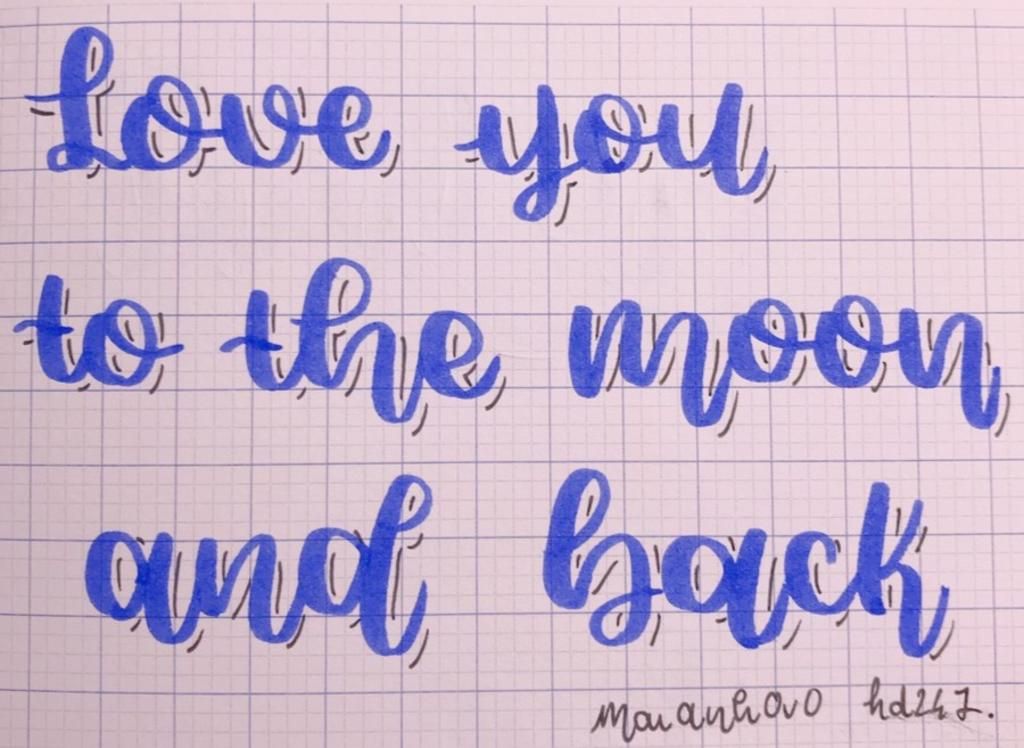 Love you
to the moon
and back
maianhovo hd247.